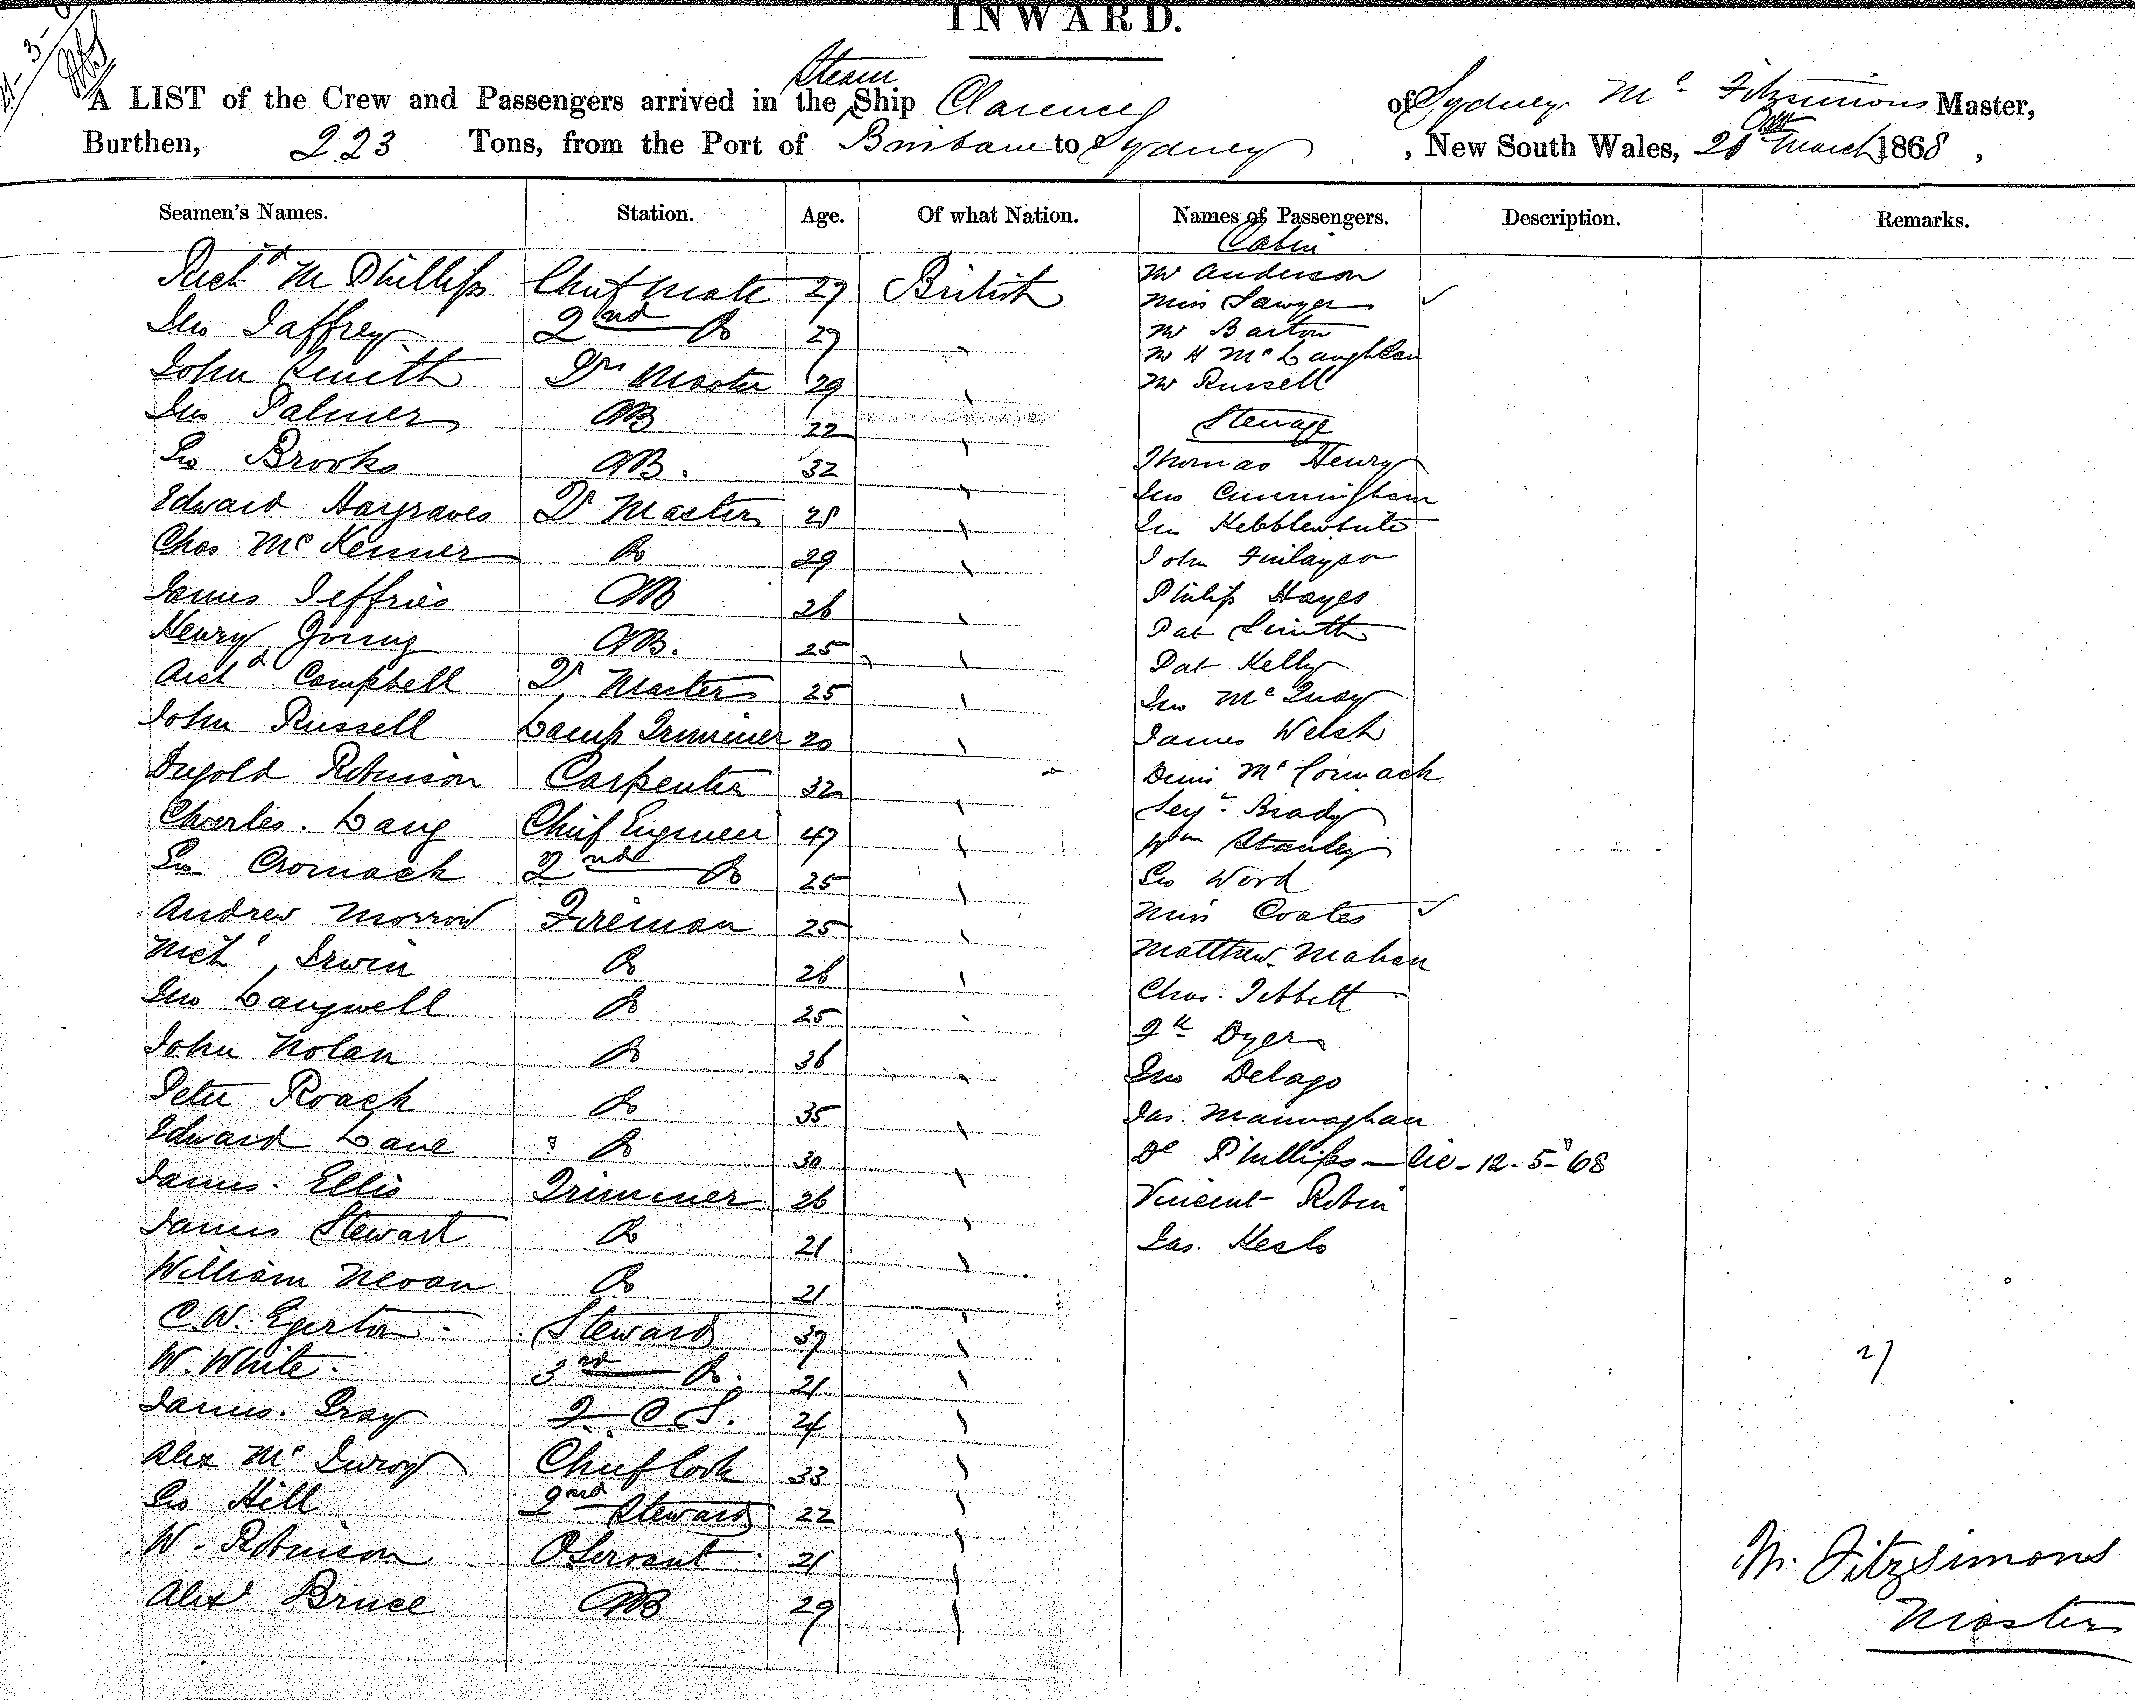 INWARD.
A LIST of the Crew and Passengers arrived in the Steam Ship Clarence of Sydney Mc Fitzsimons Master,
Burthen, 223 Tons, from the Port of Brisbane to Sydney, New South Wales, March 1868,
Seamen's Names. Station. Age. Of what Nation. Names of Passengers. Description. Remarks.
Cabin
Richd M Phillips Chief Mate 27 British Mr Anderson
Miss Sawyer ✓
Jno Jaffrey 2nd Do 27 Mr Barton
Mr H McLaughlan
John Smith Qr Master 29 Mr Russell
Jno Palmer AB 22 Steerage
Geo Brooks AB. 32 Thomas Henry
Jno Cunningham
Edward Hargraves Qr Master 28 Jno Kebblewhite
Chas McKenner Do 29 John Finlayson
James Jeffries AB 26 Philip Hayes
Henry Young AB. 25 Pat Smith
Pat Kelly
Archd Campbell Qr Master 25 Jno McQuay
John Russell Lamp Trimmer 20 James Welsh
Dugold Robinson Carpenter 32 Denis McCormack
Brady
Charles. Lang Chief Engineer 47 Wm Stanley
Geo Cromack 2nd Do 25 Geo Word
Andrew Morrow Fireman 25 Miss Coates ✓
Michl Irwin Do 26 Matthew Mahan
Jno Langwell Do 25 Chas. Tebbett
John Nolan Do 36 Dyer
Jno Delago
Peter Roach Do 35 Jas. Mannaghan
Edward Lane Do 30 Phillips - 12-5-68
James. Ellis Trimmer 26 Vincent Robin
James Stewart Do 21 Jas. Keslo
William Nevan Do 21
C.W. Egerton Steward 39
W. White. 3rd Do. 21 27
James. Gray 2 C S. 24
Alex McIlwroy Chief Cook 33
Geo Hill 2nd Steward 22
W. Robinson O Servant 21
Alexr Bruce AB 29
M. Fitzsimons
Master